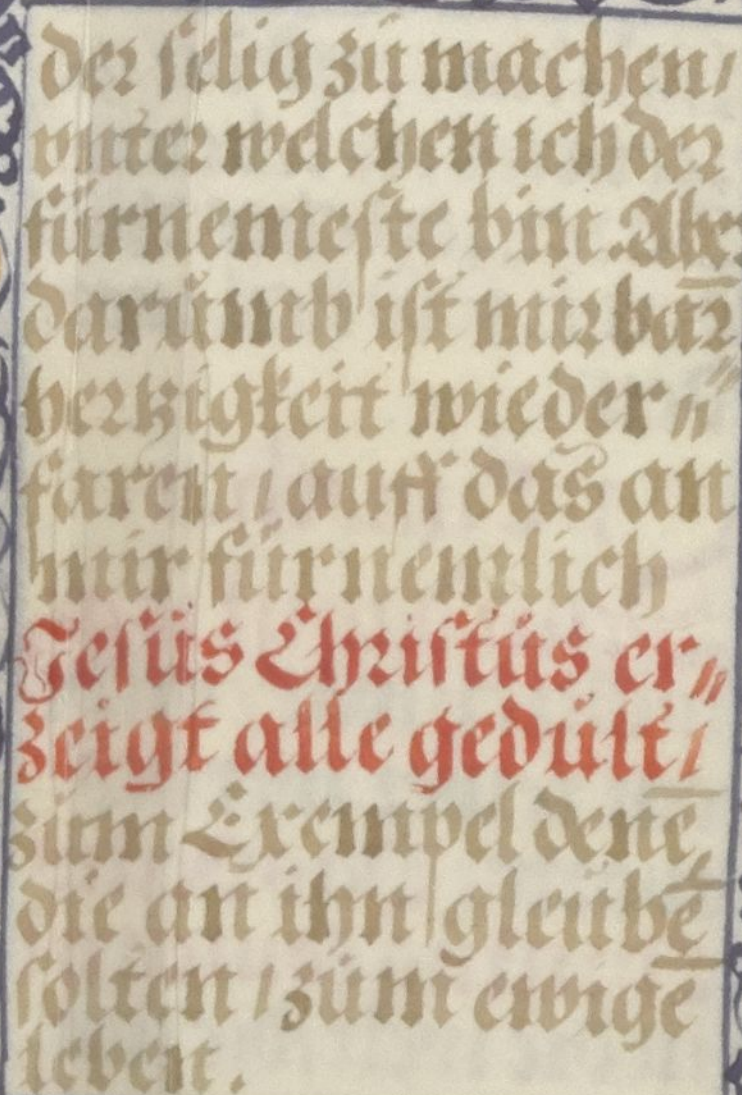 der ſelig zů machen/
vnter welchen ich der
fürnemeſte bin. Aber
darůmb iſt mir bar̄
hertzigkeit wieder⸗
faren / auff das an
mir fürnemlich
Jeſůs Chriſtůs er⸗
zeigt alle gedůlt /
zům Exempel denē
die an ihn gleůbē
ſolten / zům ewigē
leben.